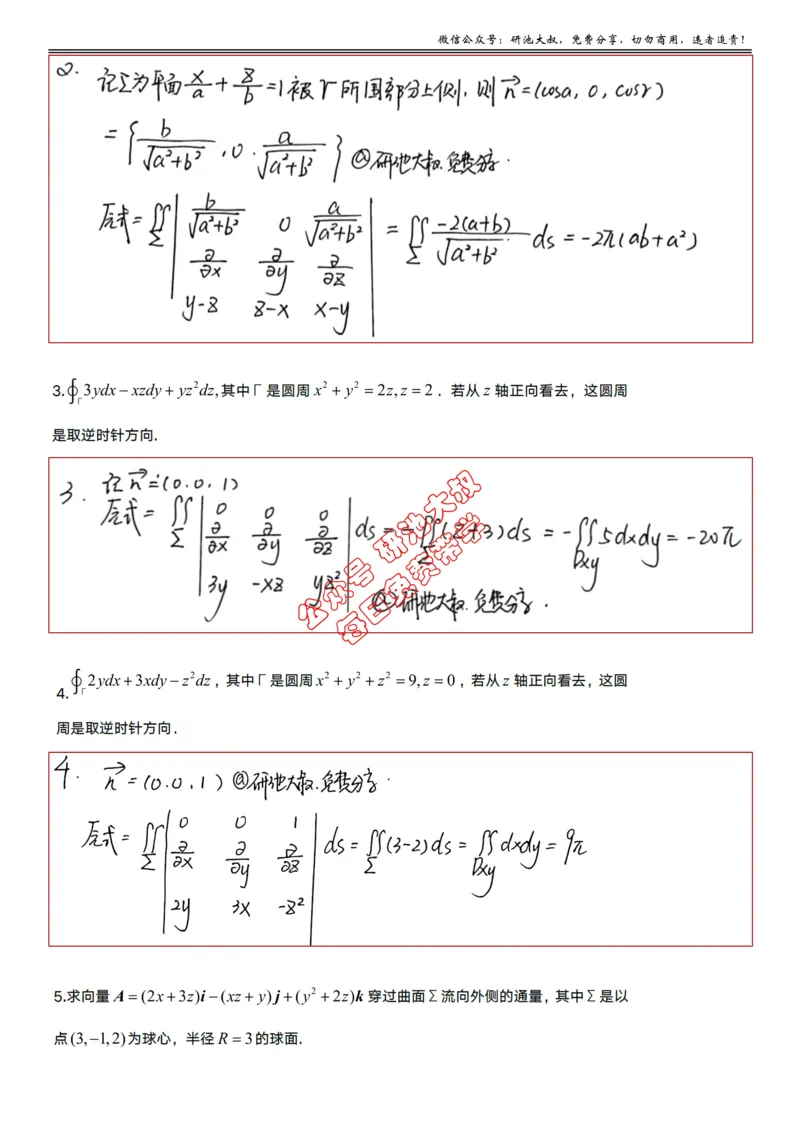 微信公众号：研池大叔，免费分享，切勿商用，违者追责！
2. 记Σ为平面 x/a + z/b =1被Γ所围部分上侧, 则 n⃗=(cosα, 0, cosγ)
= { b/√(a²+b²) , 0 . a/√(a²+b²) } @研池大叔.免费分享.
原式= ∬_Σ | b/√(a²+b²) 0 a/√(a²+b²) ; ∂/∂x ∂/∂y ∂/∂z ; y-z z-x x-y | = ∬_Σ -2(a+b)/√(a²+b²) ds = -2π(ab+a²)
3.∮_Γ 3ydx − xzdy + yz²dz,其中Γ是圆周 x² + y² = 2z, z = 2．若从 z 轴正向看去，这圆周
是取逆时针方向.
3. 记 n⃗=(0.0.1)
原式= ∬_Σ | 0 0 0 ; ∂/∂x ∂/∂y ∂/∂z ; 3y -xz yz² | ds = -∬_Σ (z+3)ds = -∬_Dxy 5dxdy = -20π
@研池大叔.免费分享.
公众号 研池大叔
每日免费带学
4. ∮_Γ 2ydx+3xdy−z²dz，其中Γ是圆周x² + y² + z² = 9, z = 0，若从z 轴正向看去，这圆
周是取逆时针方向.
4. n⃗=(0.0.1) @研池大叔.免费分享.
原式= ∬_Σ | 0 0 1 ; ∂/∂x ∂/∂y ∂/∂z ; 2y 3x -z² | ds = ∬_Σ (3-2)ds = ∬_Dxy dxdy = 9π
5.求向量 A = (2x+3z)i − (xz + y)j + (y² + 2z)k 穿过曲面Σ流向外侧的通量，其中Σ是以
点(3,−1,2)为球心，半径 R = 3的球面.